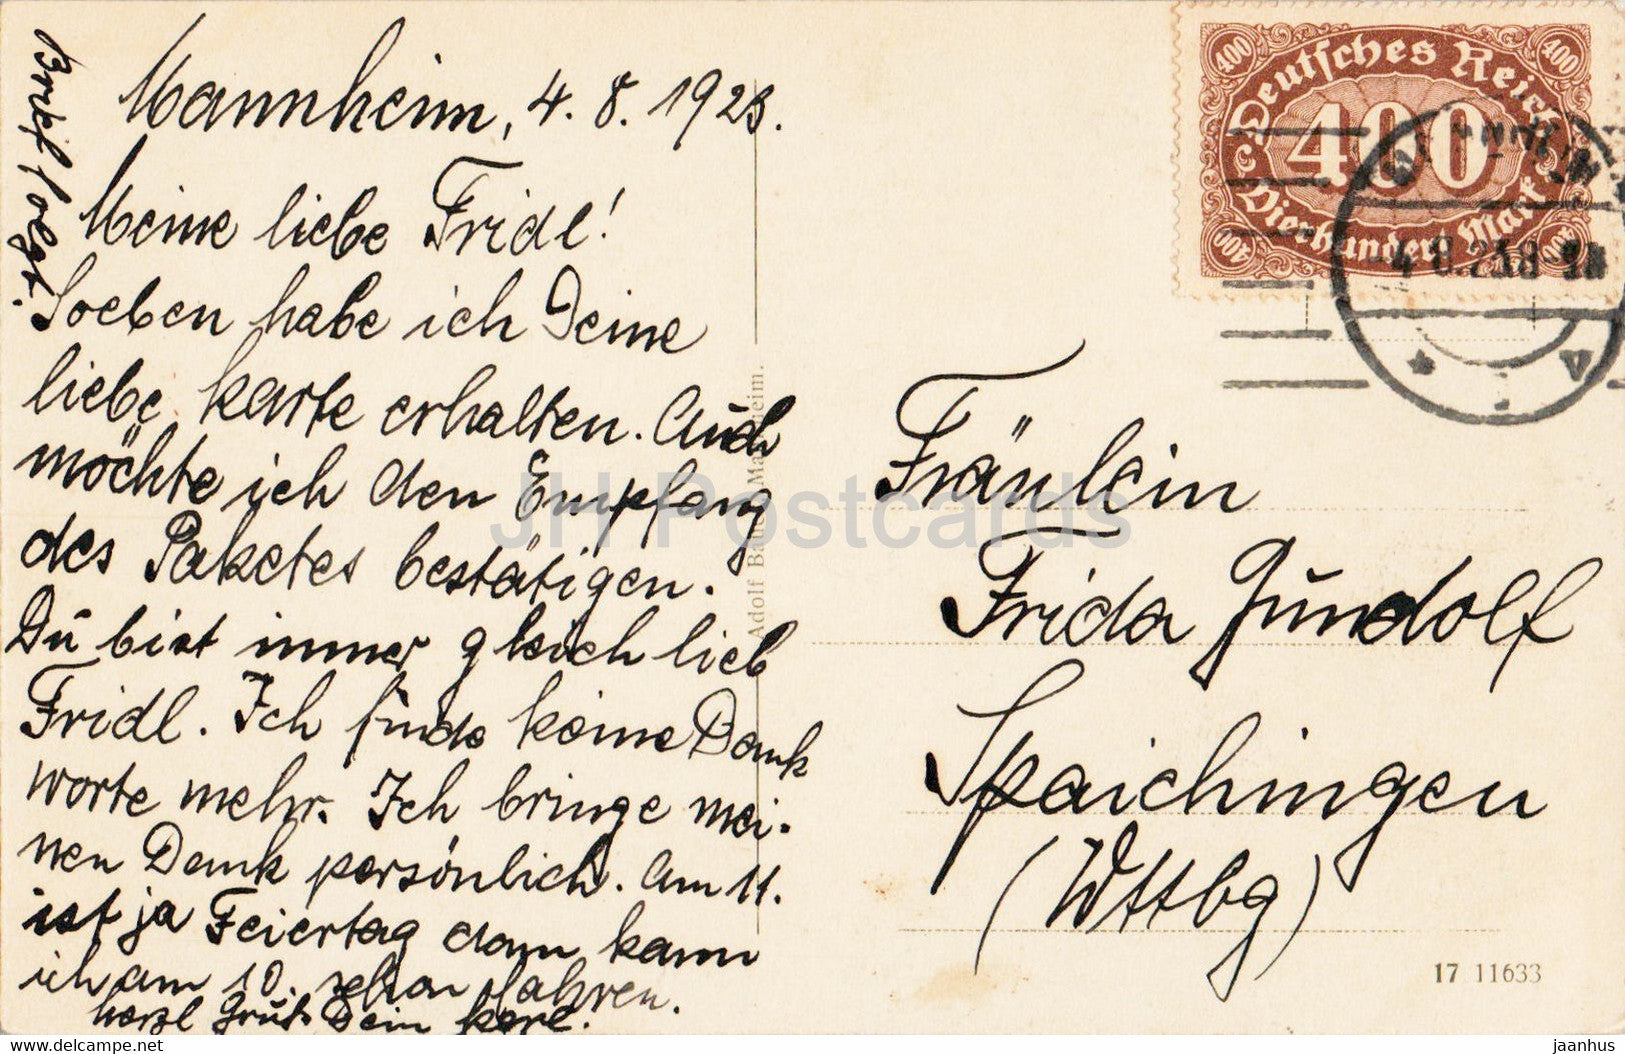 Brief folgt.
Mannheim, 4. 8. 1923.
Meine liebe Fridl!
Soeben habe ich Deine
liebe Karte erhalten. Auch
möchte ich den Empfang
des Paketes bestätigen.
Du bist immer gleich lieb
Fridl. Ich finde keine Dank
worte mehr. Ich bringe mei-
nen Dank persönlich. Am 11.
ist ja Feiertag dann kann
ich am 10. schon fahren.
Herzl Gruß Dein Karl.
Adolf Mannheim.
Deutsches Reich
400
400
400
400
400
Vierhundert Mark
4.8.23
Fräulein
Frida Gundolf
Spaichingen
(Wttbg)
17 11633
JH Postcards
jaanhus © www.delcampe.net